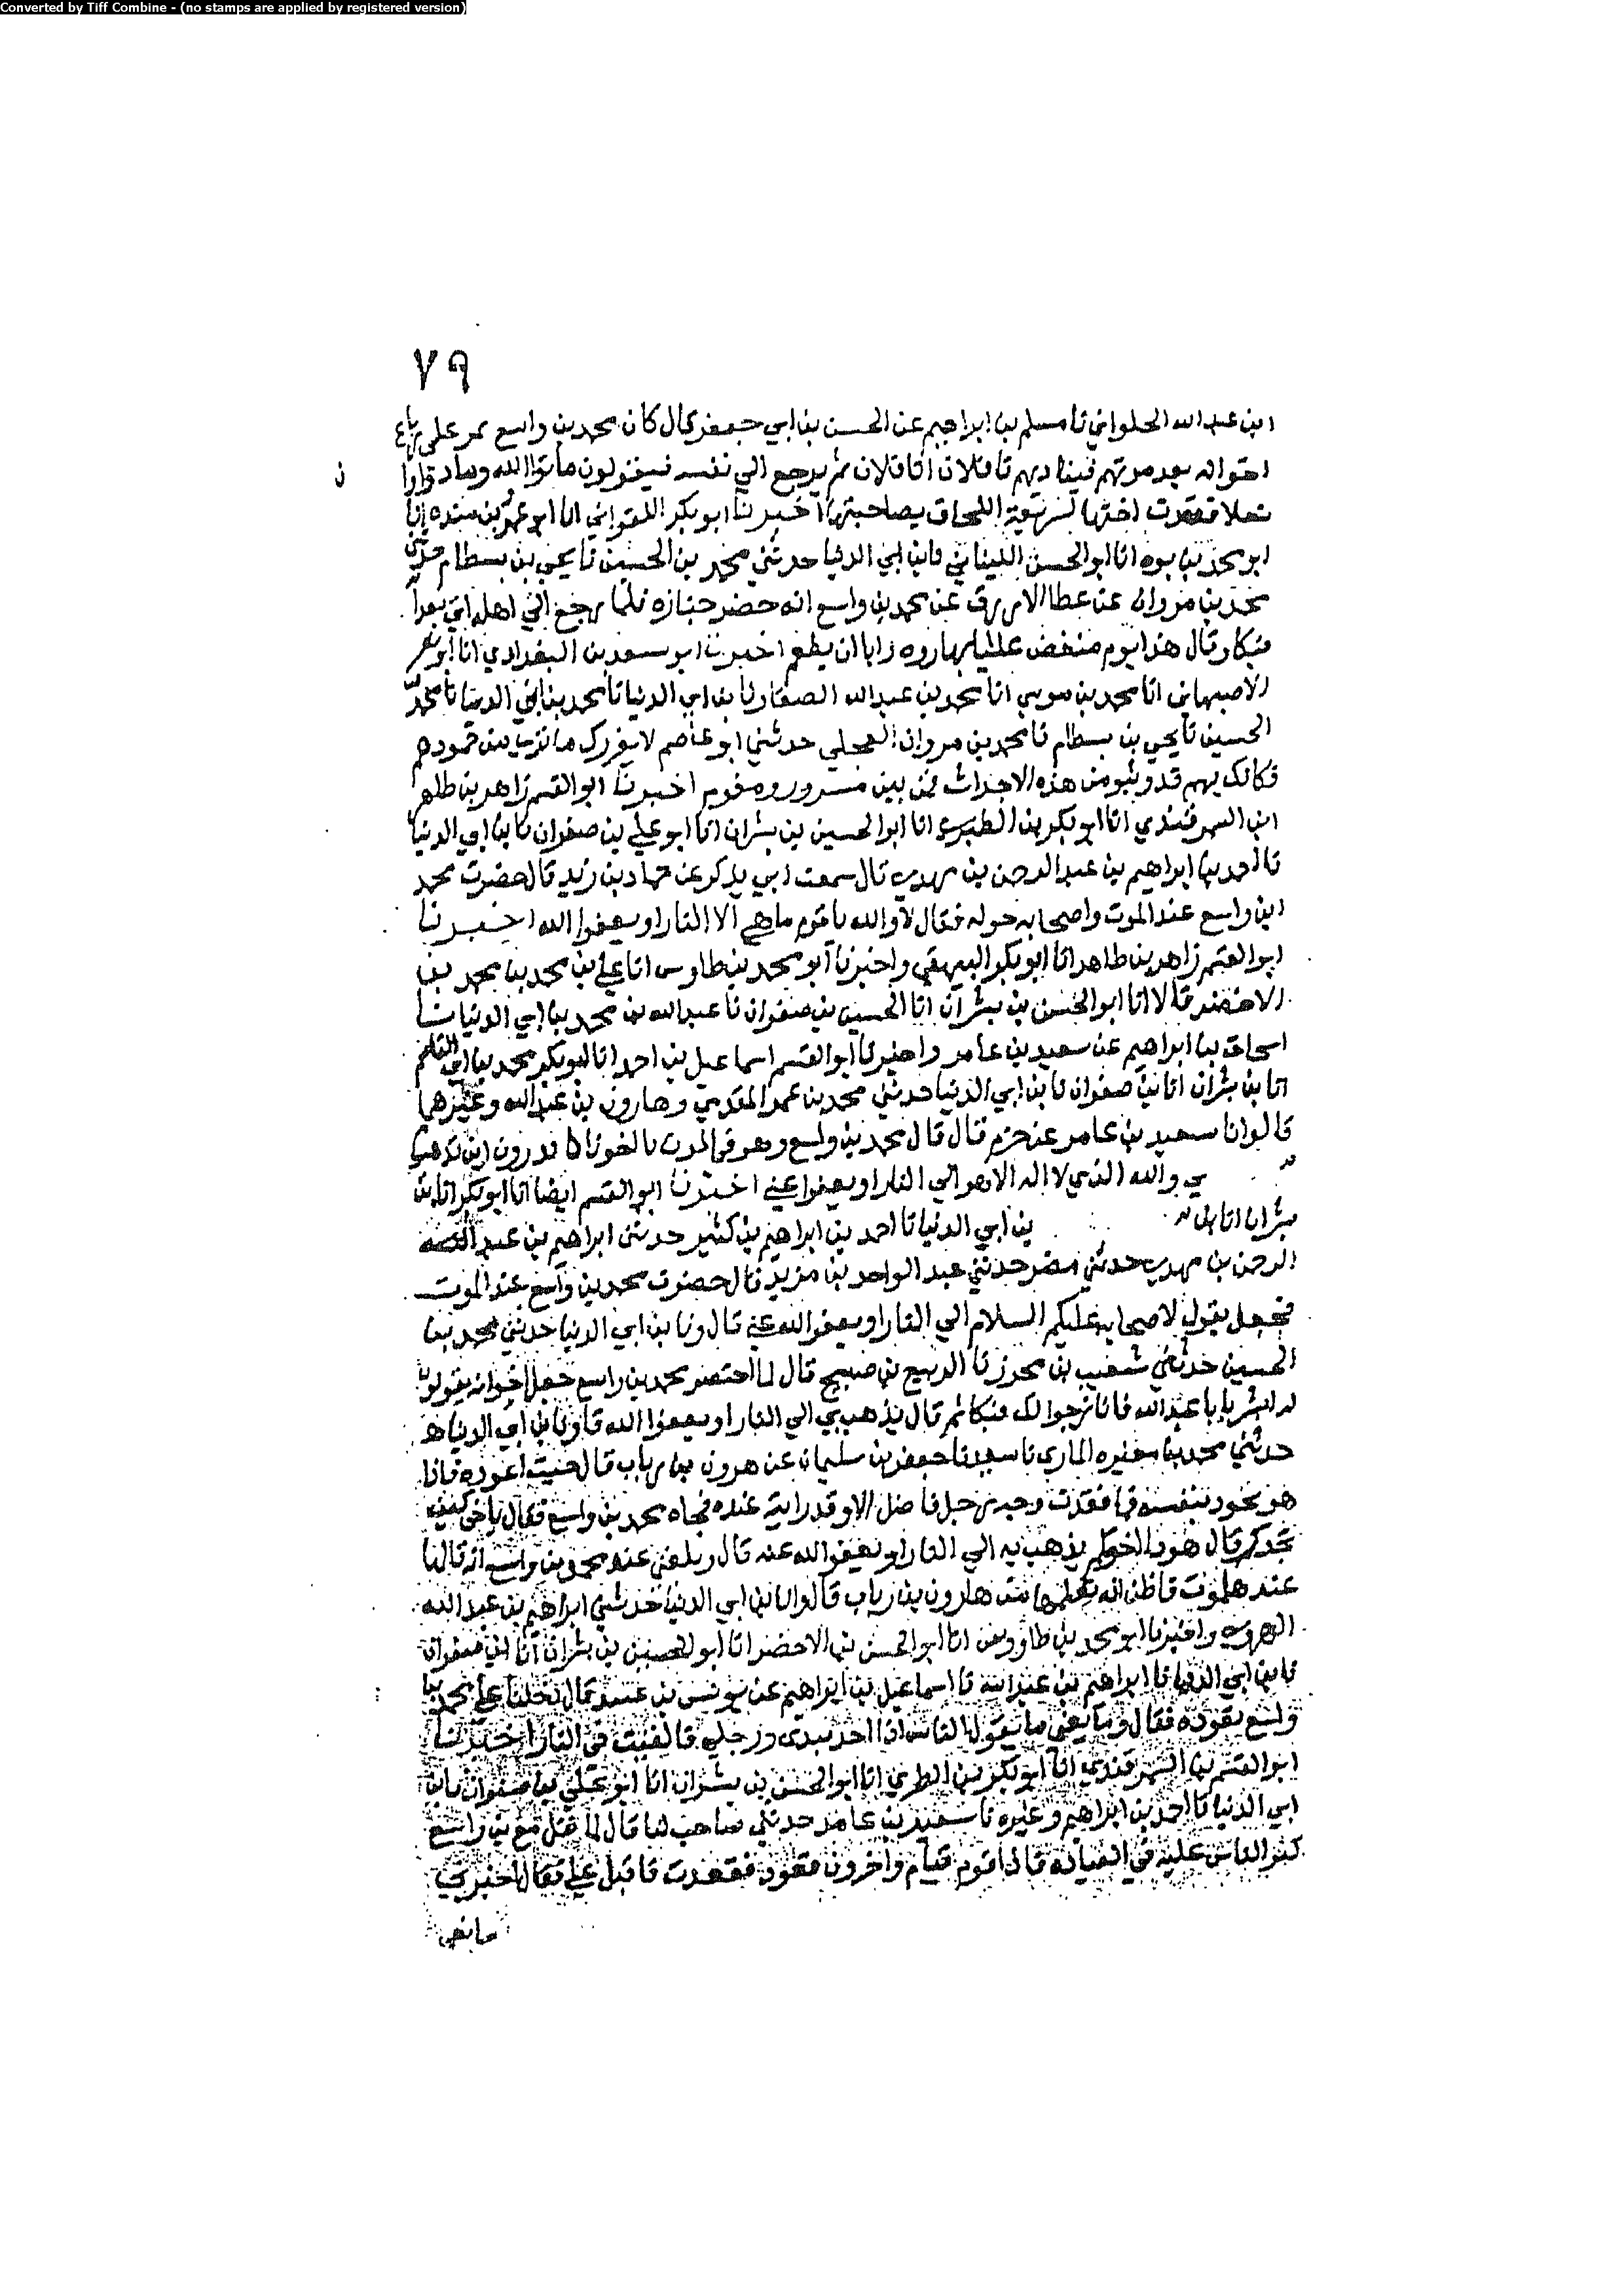 Converted by Tiff Combine - (no stamps are applied by registered version)
٧٩
ابن عبد الله الحلواني نا مسلم بن ابراهيم عن الحسن بن ابي جعفر قال كان محمد بن واسع يمر على
اخوانه بعد موتهم فيناديهم نا فلان انا فلان ثم يرجع الي نفسه فيقولون ماتوا الله
ن
اخبرنا ابو بكر اللفتواني انا ابو عمرو بن منده انا
ابو محمد بن يوه انا ابو الحسن اللبناني نا بن ابي الدنيا حدثني محمد بن الحسين نا يحيي بن بسطام حدثني
محمد بن مروان عن عطا الازرق عن محمد بن واسع انه حضر جنازه فلما رجع الي اهله اتي بغدا
فبكا وقال هذا يوم منغص علينا نهاره وابا ان يطعم اخبرنا ابو سعد بن البغدادي انا ابو نصر
الاصبهاني انا محمد بن موسي انا محمد بن عبد الله الصفار نا بن ابي الدنيا نا محمد بن ابي الدنيا نا محمد بن
الحسين نا يحي بن بسطام نا محمد بن مروان العجلي حدثني ابو عاصم لا يغررك ما تري من خمودهم
فكانك بهم قد وثبو من هذه الاجداث فمن بين مسرور ومغموم اخبرنا ابو القسم زاهر بن طاهر
ابن السمرقندي انا ابو بكر بن الطبري انا ابو الحسين بن بشران انا ابو علي بن صفوان نا بن ابي الدنيا
نا احمد بن ابراهيم بن عبد الرحمن بن مهدي قال سمعت ابي يذكر عن حماد بن زيد قال حضرت محمد
ابن واسع عند الموت واصحابه حوله فقال لا والله يا قوم ما هي الا النار او يعفوا الله اخبرنا
ابو القسم زاهر بن طاهر انا ابو بكر البيهقي واخبرنا ابو محمد بن طاوس انا علي بن محمد بن محمد بن
الاخضر قالا انا ابو الحسن بن بشران انا الحسين بن صفوان نا عبد الله بن محمد بن ابي الدنيا نا
اسحاق بن ابراهيم عن سعيد بن عامر واخبرنا ابو القسم اسماعيل بن احمد انا ابو بكر محمد بن ابي القاسم
انا بن بشران انا بن صفوان نا بن ابي الدنيا حدثني محمد بن عمر المقدمي وهارون بن عبد الله وغيرهما
قالوا نا سعيد بن عامر عن حزم قال قال محمد بن واسع وهو في الموت يا اخوتاه تدرون اين يذهب
بي والله الذي لا اله الا هو الي النار او يعفوا عني اخبرنا ابو القسم ايضا انا ابو بكر انا بن
بشران انا بن بن ابي الدنيا نا احمد بن ابراهيم بن كثير حدثني ابراهيم بن عبد
الرحمن بن مهدي حدثني مضر حدثني عبد الواحد بن مزيد قال حضرت محمد بن واسع عند الموت
فجعل يقول لاصحابه عليكم السلام الي النار او يعفو الله عني قال ونا بن ابي الدنيا حدثني محمد بن
الحسين حدثني شعيب بن محرز نا الربيع بن صبيح قال لما احتضر محمد بن واسع جعل اخوانه يقولون
له ابشر يا ابا عبد الله فانا نرجوا لك فبكا ثم قال يذهب بي الي النار او يعفوا الله قال ونا بن ابي الدنيا
حدثني محمد بن مغيره المازني نا سعيد نا جعفر بن سليمان عن هرون بن رياب قال جيت اعوده فاذا
هو يجود بنفسه فما فقدت وجه رجل فاضل الا وقد رايته عنده فجاه محمد بن واسع فقال يا اخي كيف
تجدك قال هوذا اخوكم يذهب به الي النار او يعفو الله عنه قال وبلغني عنه محمد بن واسع انه قالها
عند الموت فاظن انه تعلمها من هارون بن رياب قال وانا بن ابي الدنيا حدثني ابراهيم بن عبد الله
الهروي واخبرنا ابو محمد بن طاووس انا ابو الحسن بن الاخضر انا ابو الحسين بن بشران انا ابن صفوان
نا بن ابي الدنيا نا ابراهيم بن عبد الله نا اسماعيل بن ابراهيم عن يونس بن عبيد قال دخلنا علي محمد بن
واسع نعوده فقال وما يغني ما يقول الناس اذا اخذ بيدي ورجلي فالقيت في النار اخبرنا
ابو القسم بن السمرقندي انا ابو بكر بن الطبري انا ابو الحسن بن بشران انا ابو علي بن صفوان نا بن
ابي الدنيا نا احمد بن ابراهيم وغيره نا سعيد بن عامر حدثني صاحب لنا قال لما ثقل محمد بن واسع
كثر الناس عليه في العياده فاذا قوم قيام واخرون قعود فقعدت فاقبل علي فقال اخبرني
ما يغني